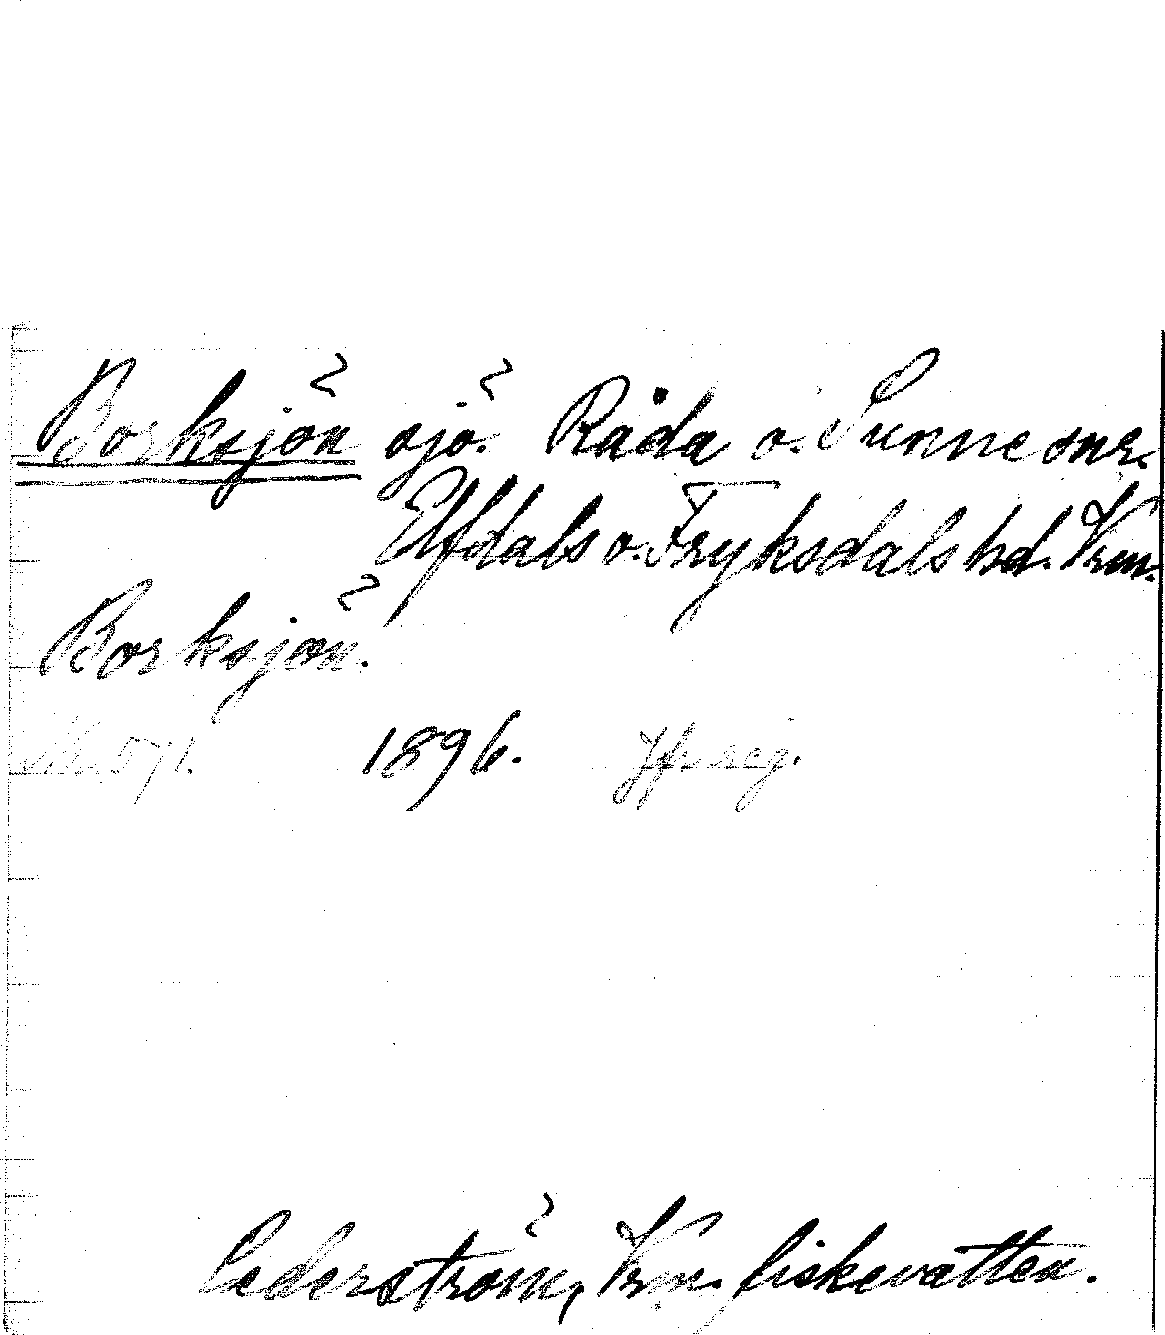 Borksjön sjö. Råda o. Sunne snr.
Elfdals o. Fryksdals hd. Vrm.
Borksjön.
571. 1896. Jfr reg.
Cederström, Vrm. fiskevatten.